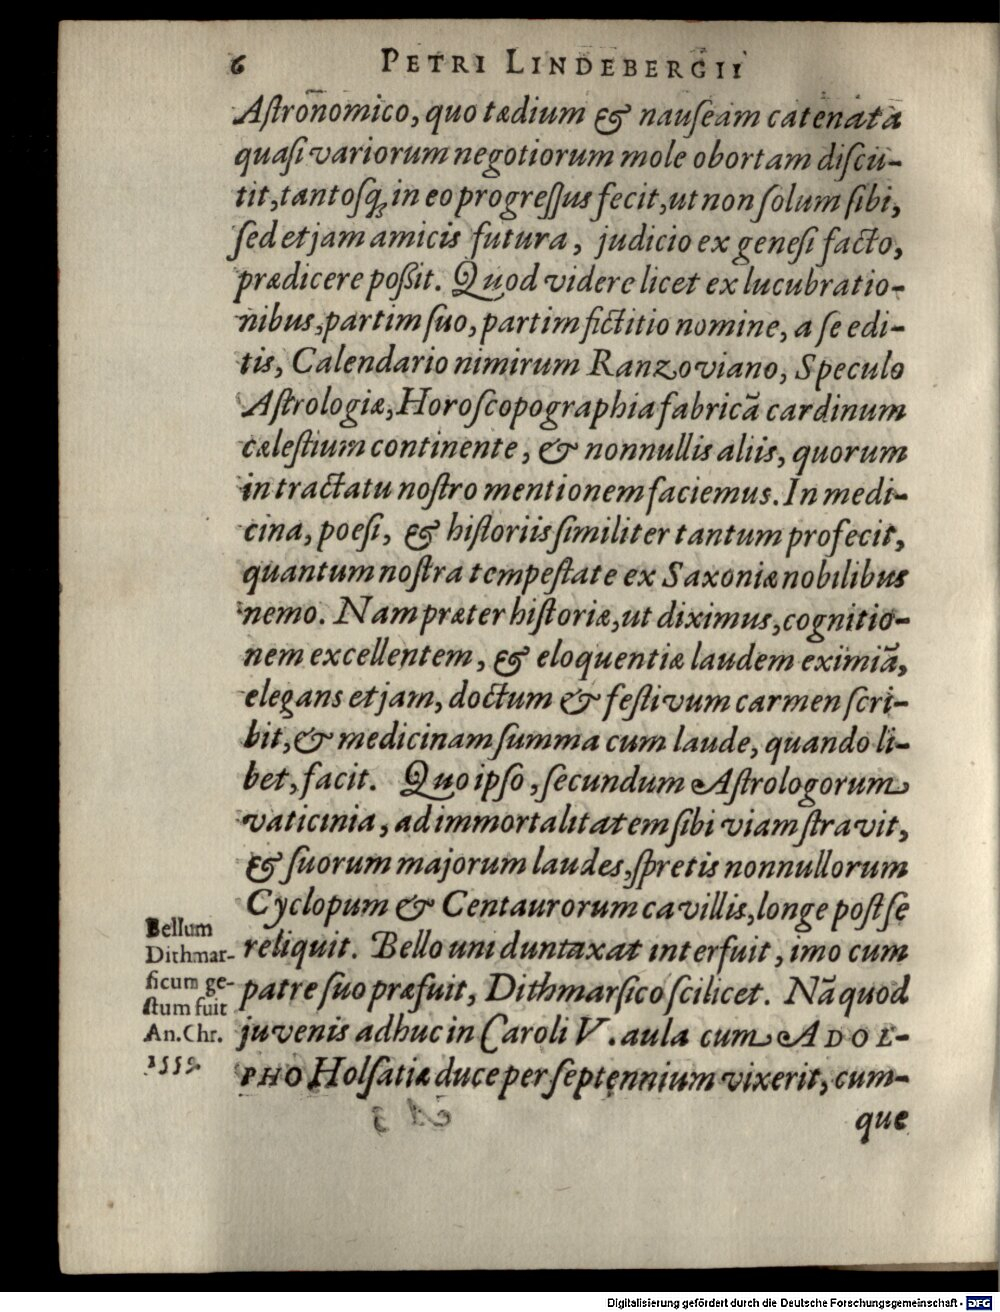 6 PETRI LINDEBERGII
Aſtronomico, quo tædium & nauſeam catenata
quaſi variorum negotiorum mole obortam diſcu-
tit, tantoſq́ꝫ in eo progreſſus fecit, ut non ſolum ſibi,
ſed etjam amicis futura, judicio ex geneſi facto,
prædicere poßit. Quod videre licet ex lucubratio-
nibus, partim ſuo, partim fictitio nomine, a ſe edi-
tis, Calendario nimirum Ranzoviano, Speculo
Aſtrologiæ, Horoſcopographia fabricã cardinum
cæleſtium continente, & nonnullis aliis, quorum
in tractatu noſtro mentionem faciemus. In medi-
cina, poeſi, & hiſtoriis ſimiliter tantum profecit,
quantum noſtra tempeſtate ex Saxoniæ nobilibus
nemo. Nam præter hiſtoriæ, ut diximus, cognitio-
nem excellentem, & eloquentiæ laudem eximiã,
elegans etjam, doctum & feſtivum carmen ſcri-
bit, & medicinam ſumma cum laude, quando li-
bet, facit. Quo ipſo, ſecundum Aſtrologorum
vaticinia, ad immortalitatem ſibi viam ſtravit,
& ſuorum majorum laudes, ſpretis nonnullorum
Cyclopum & Centaurorum cavillis, longe poſt ſe
reliquit. Bello uni duntaxat interfuit, imo cum
patre ſuo præfuit, Dithmarſico ſcilicet. Nã quod
juvenis adhuc in Caroli V. aula cum ADOL-
PHO Holſatiæ duce per ſeptennium vixerit, cum-
que
Bellum
Dithmar-
ſicum ge-
ſtum fuit
An. Chr.
1559.
Digitalisierung gefördert durch die Deutsche Forschungsgemeinschaft - DFG